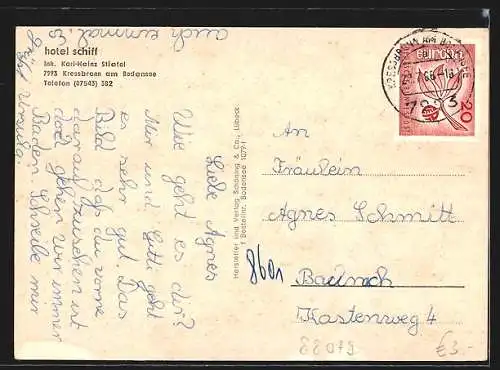 hotel schiff
Inh. Karl-Heinz Stiefel
7993 Kressbronn am Bodensee
Telefon (07543) 582
Hersteller und Verlag Schöning & Co., Lübeck
1 Bestellnr. Bodensee 10791
KRESSBRONN AM BODENSEE
7993
europa
20
An
Fräulein
Agnes Schmitt
8601 Baunach
Kastenweg 4
Liebe Agnes
Wie geht es dir?
Mir und Gitti geht
es sehr gut. Das
Bild daß du vorne
darauf zusehen ist
dort gehen wir immer
Baden. Schreibe mir
auch einmal. Es
grüßt Ursula.
€3,-